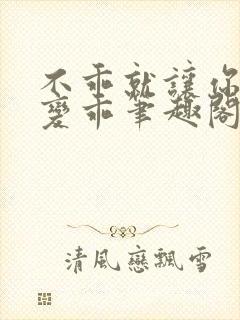 不乖就讓你
變乖筆趣閣
清風戀飄雪